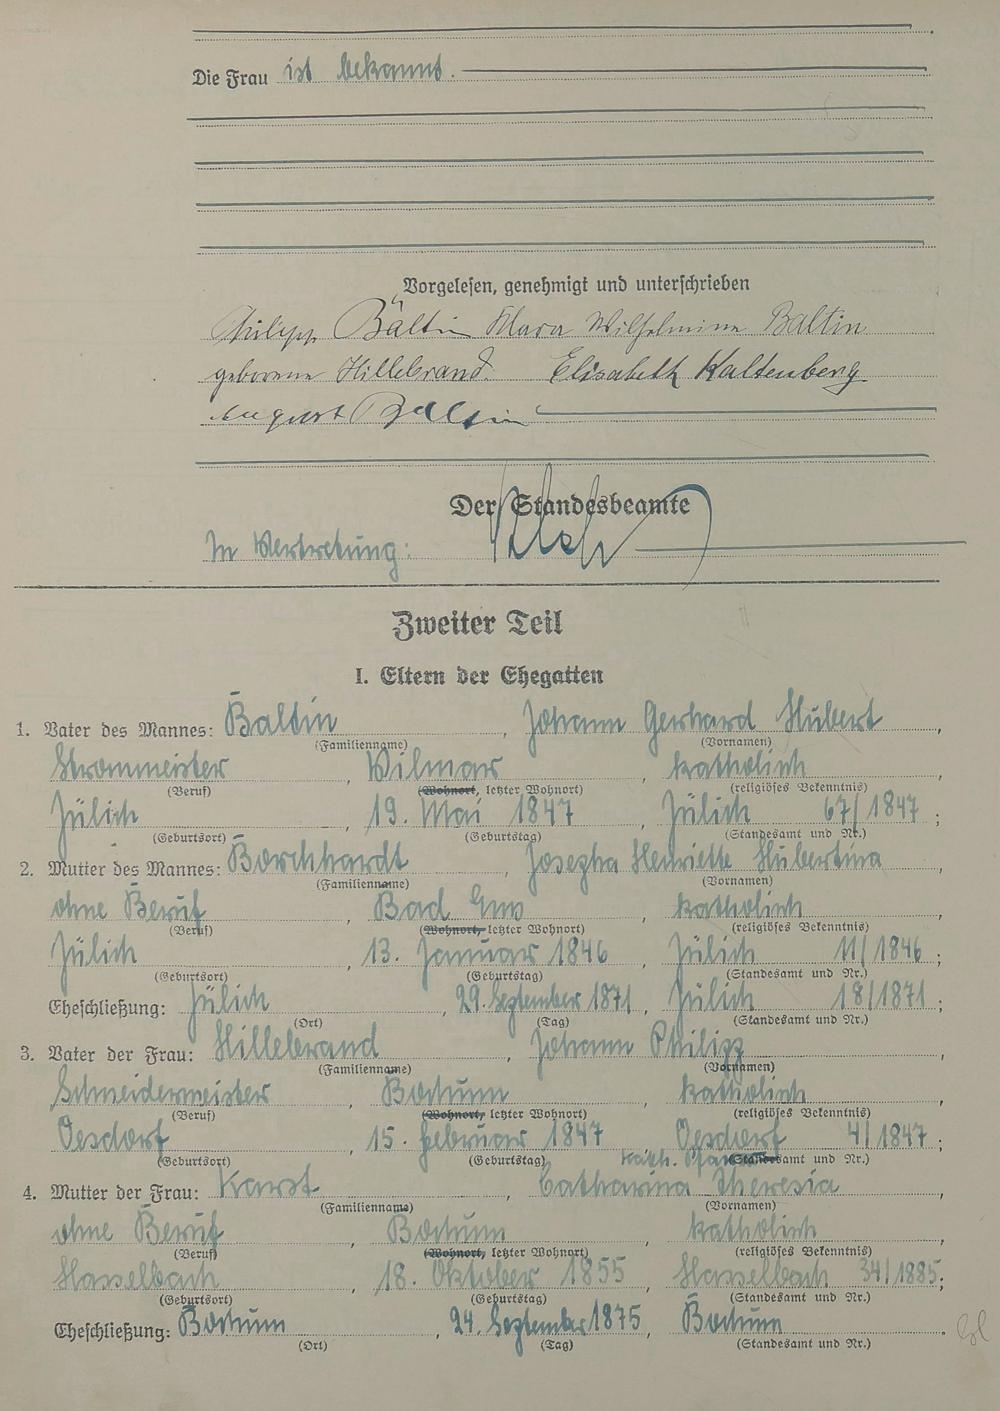 Die Frau ist bekannt.
Vorgelesen, genehmigt und unterschrieben
Philipp Baltin Klara Wilhelmine Baltin
geborene Hillebrand. Elisabeth Kaltenberg
August Baltin
Der Standesbeamte
In Vertretung:
Zweiter Teil
I. Eltern der Ehegatten
1. Vater des Mannes: Baltin, Johann Gerhard Hubert,
(Familienname) (Vornamen)
Strommeister, Wilmar, katholisch,
(Beruf) (Wohnort, letzter Wohnort) (religiöses Bekenntnis)
Jülich, 19. Mai 1847, Jülich 67/1847;
(Geburtsort) (Geburtstag) (Standesamt und Nr.)
2. Mutter des Mannes: Borchhardt, Josepha Henriette Hubertina,
(Familienname) (Vornamen)
ohne Beruf, Bad Ems, katholisch,
(Beruf) (Wohnort, letzter Wohnort) (religiöses Bekenntnis)
Jülich, 13. Januar 1846, Jülich 11/1846;
(Geburtsort) (Geburtstag) (Standesamt und Nr.)
Eheschließung: Jülich, 29. September 1871, Jülich 18/1871;
(Ort) (Tag) (Standesamt und Nr.)
3. Vater der Frau: Hillebrand, Johann Philipp,
(Familienname) (Vornamen)
Schneidermeister, Bochum, katholisch,
(Beruf) (Wohnort, letzter Wohnort) (religiöses Bekenntnis)
Oesdorf, 15. Februar 1847, Oesdorf 4/1847;
(Geburtsort) (Geburtstag) kath. (Standesamt und Nr.)
4. Mutter der Frau: Karst, Catharina Theresia,
(Familienname) (Vornamen)
ohne Beruf, Bochum, katholisch,
(Beruf) (Wohnort, letzter Wohnort) (religiöses Bekenntnis)
Hasselbach, 18. Oktober 1855, Hasselbach 34/1885;
(Geburtsort) (Geburtstag) (Standesamt und Nr.)
Eheschließung: Bochum, 24. September 1875, Bochum.
(Ort) (Tag) (Standesamt und Nr.)